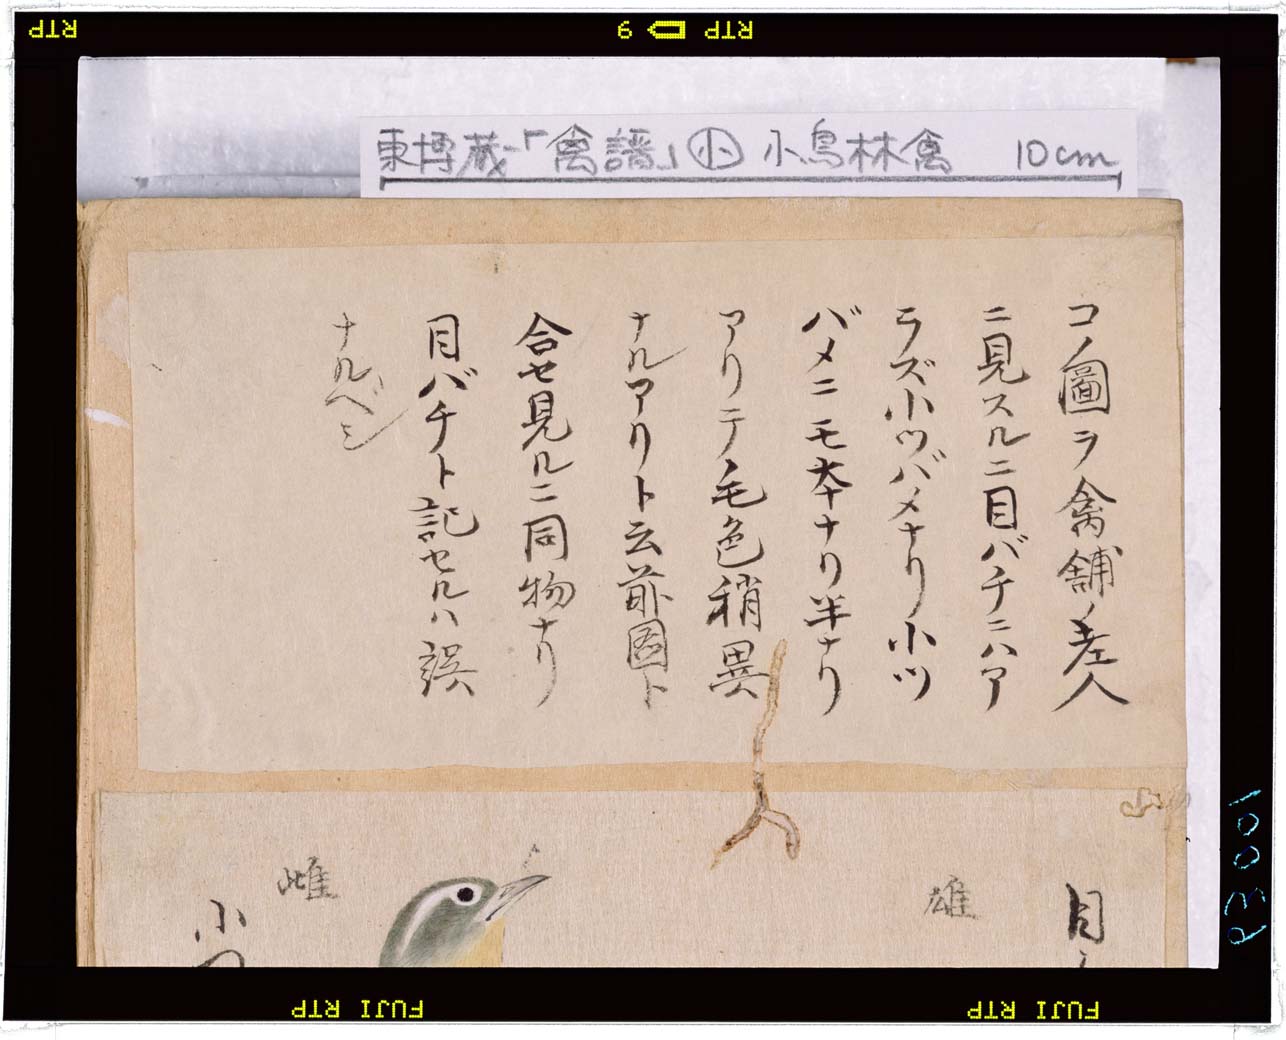 RTP 9 RTP
東博蔵「禽譜」㊉ 小鳥林禽 10cm
コノ圖ヲ禽舗ノ老人
ニ見スルニ目バチニハア
ラズ小ツバメナリ小ツ
バメニモ本ナリ半ナリ
アリテ毛色稍異
ナルアリト云前図ト
合セ見ルニ同物ナリ
目バチト記セルハ誤
ナルベシ
雄
雌
目
小
P3001
FUJI RTP
FUJI RTP